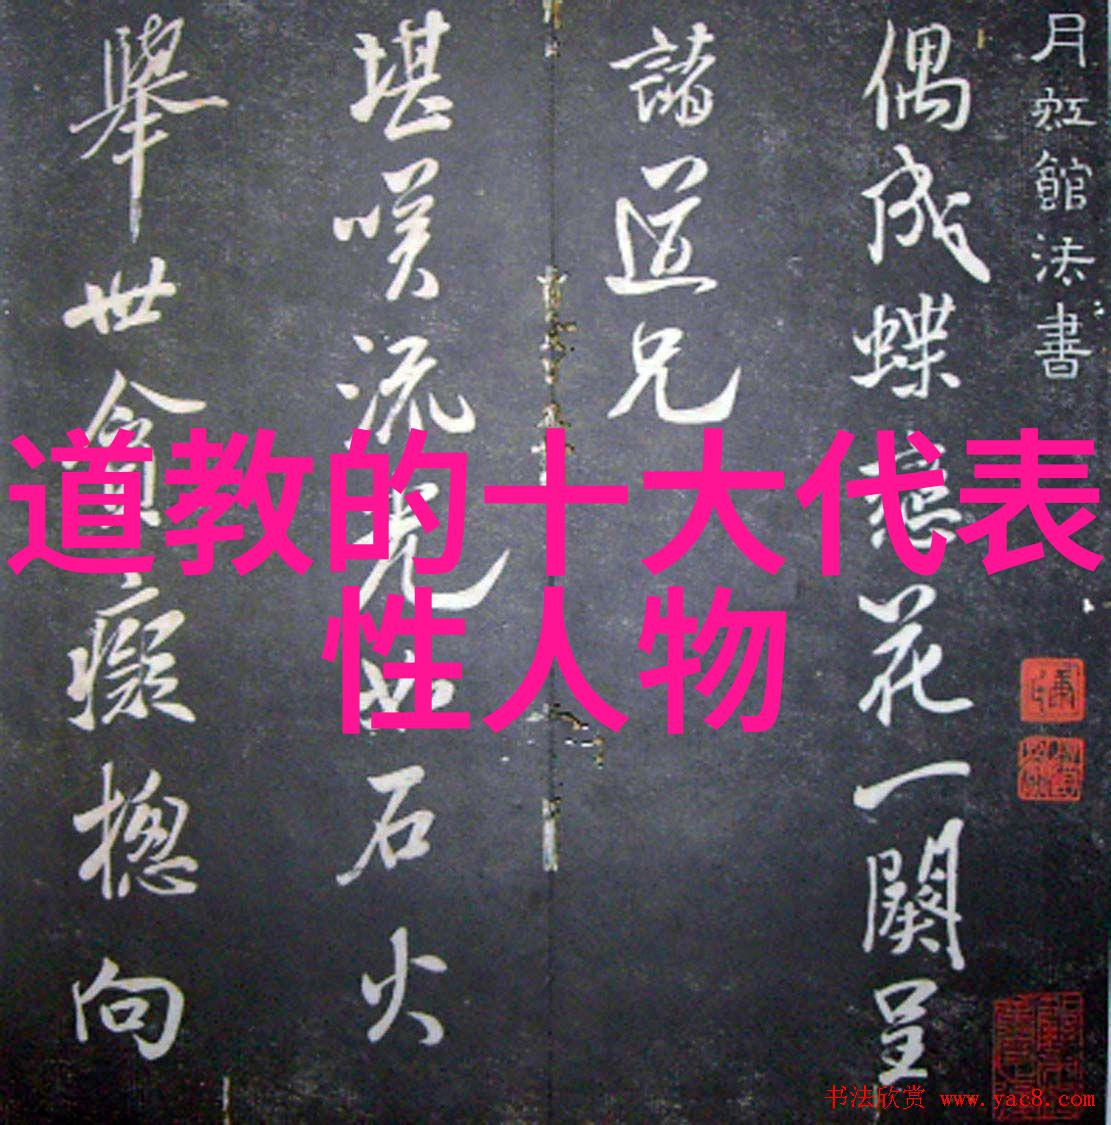 道教的十大代表
性人物
月虹館法書
偶成蝶戀花一闋呈
諸道兄
堪咲流光如石火
舉世貪癡摠向
书法欣赏 www.yac8.com